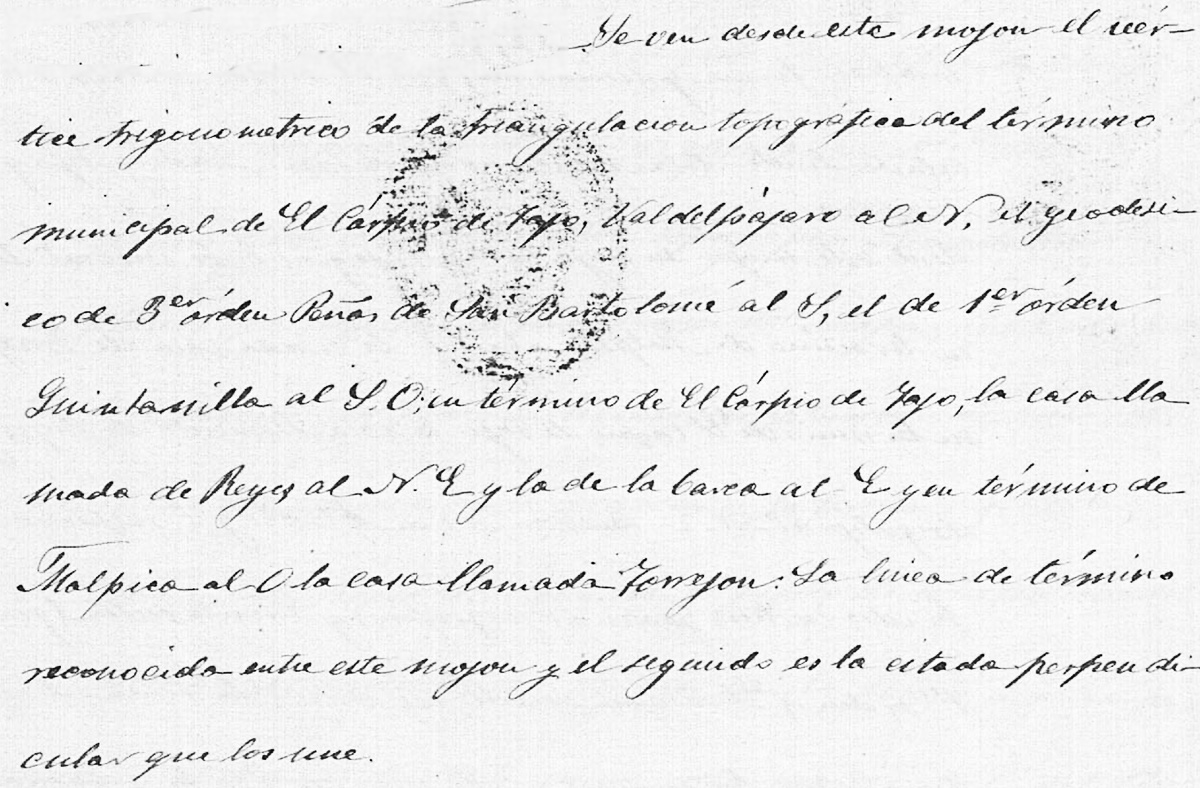 Se ven desde este mojon el vér-
tice trigonometrico de la triangulacion topográfica del término
municipal de El Cárpio de Tajo, Valdelpájaro al N, el geodesi-
co de 3er órden Peñas de San Bartolomé al S, el de 1er órden
Quintanilla al S.O; en término de El Cárpio de Tajo, la casa lla
mada de Reyes al N.E y la de la barca al E y en término de
Malpica al O la casa llamada Torrejon: La linea de término
reconocida entre este mojon y el segundo es la citada perpendi-
cular que los une.